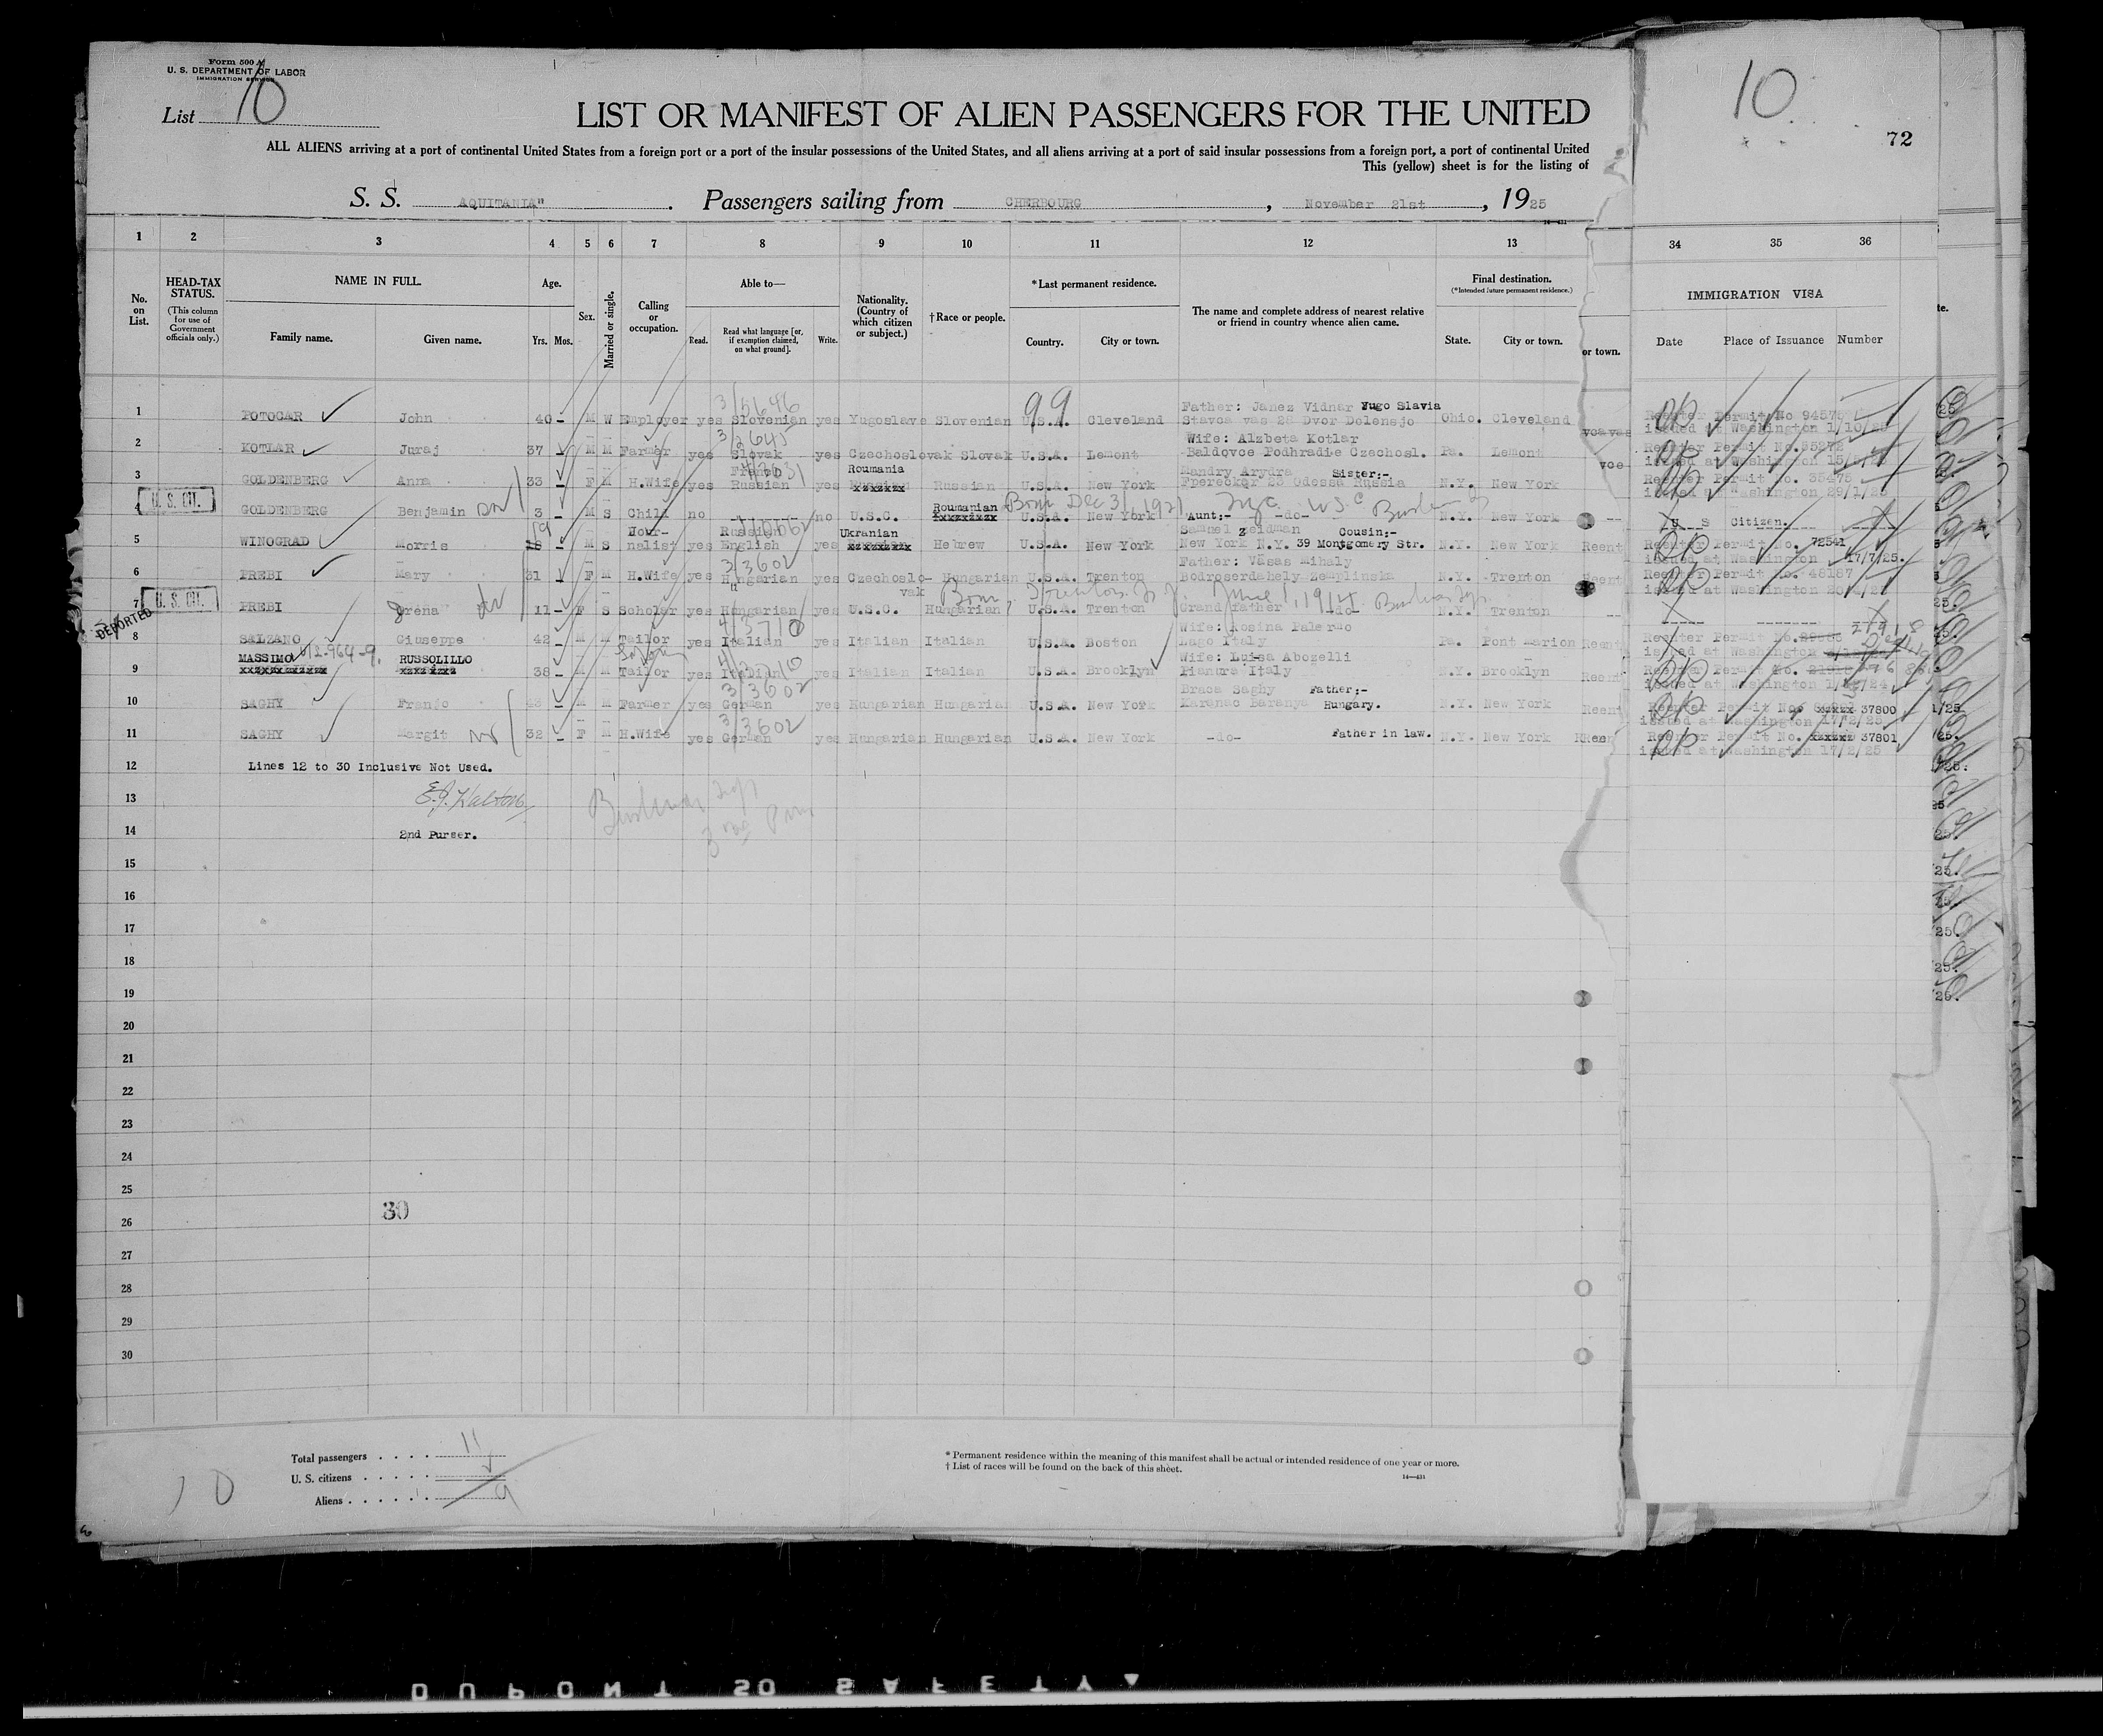 Form 500 A
U. S. DEPARTMENT OF LABOR
IMMIGRATION SERVICE
List 10
LIST OR MANIFEST OF ALIEN PASSENGERS FOR THE UNITED
10
72
ALL ALIENS arriving at a port of continental United States from a foreign port or a port of the insular possessions of the United States, and all aliens arriving at a port of said insular possessions from a foreign port, a port of continental United
This (yellow) sheet is for the listing of
S. S. AQUITANIA" . Passengers sailing from CHERBOURG , November 21st , 1925
1 2 3 4 5 6 7 8 9 10 11 12 13 34 35 36
No. on List.
HEAD-TAX STATUS.
(This column for use of Government officials only.)
NAME IN FULL.
Family name. Given name.
Age.
Yrs. Mos.
Sex.
Married or single.
Calling or occupation.
Able to—
Read. Read what language [or, if exemption claimed, on what ground]. Write.
Nationality. (Country of which citizen or subject.)
†Race or people.
*Last permanent residence.
Country. City or town.
The name and complete address of nearest relative or friend in country whence alien came.
Final destination.
(*Intended future permanent residence.)
State. City or town.
or town.
IMMIGRATION VISA
Date Place of Issuance Number
3/5646
99
1 POTOCAR John 40 - M W Employer yes Slovenian yes Yugoslave Slovenian U.S.A. Cleveland Father: Janez Vidnar Yugo Slavia
Stavca vas 28 Dvor Dolensjo Ohio. Cleveland Reenter Permit No 94575
issued at Washington 1/10/25
3/2645
2 KOTLAR Juraj 37 M M Farmer yes Slovak yes Czechoslovak Slovak U.S.A. Lemont Wife: Alzbeta Kotlar
Baldovce Podhradie Czechosl. Pa. Lemont Reenter Permit No.
issued at Washington
3 GOLDENBERG Anna 33 F M H.Wife yes French Russian yes Roumania Russian U.S.A. New York Sister:-
Odessa Russia N.Y. New York Reenter Permit No. 35475
issued at Washington 29/1/25
U. S. CIT.
Born Dec 31, 1921
4 GOLDENBERG Benjamin 3 - M S Child no no U.S.C. Roumanian U.S.A. New York Aunt:- -do- N.Y. New York -- U S Citizen.
5 WINOGRAD Morris 19 - M S Jour-nalist yes Russian English yes Ukranian Hebrew U.S.A. New York Samuel Zeidman Cousin:-
New York N.Y. 39 Montgomery Str. N.Y. New York Reent Reenter Permit No. 72541
issued at Washington 17/7/25.
3/3602
6 PREBI Mary 31 F M H.Wife yes Hungarian yes Czechoslo-vak Hungarian U.S.A. Trenton Father: Vasas Mihaly
Bodroserdahely Zemplinska N.Y. Trenton Reenter Permit No. 48187
U. S. CIT.
Born Trenton N. J. June 1, 1914
7 PREBI Jrena 11 - F S Scholar yes Hungarian yes U.S.C. Hungarian U.S.A. Trenton Grand father -do- N.Y. Trenton
DEPORTED
4/3710
8 SALZANO Giuseppe 42 - M M Tailor yes Italian yes Italian Italian U.S.A. Boston Wife: Rosina Palermo
Lago Italy Pa. Pont Marion Reent Reenter Permit No.
issued at Washington
4/3710
9 MASSIMO RUSSOLILLO 38 - M M Tailor yes Italian yes Italian Italian U.S.A. Brooklyn Wife: Luisa Abozelli
Pianura Italy N.Y. Brooklyn Reent Reenter Permit No.
issued at Washington
3/3602
10 SAGHY Franjo 43 - M M Farmer yes German yes Hungarian Hungarian U.S.A. New York Braca Saghy Father;-
Karanac Baranya Hungary. N.Y. New York Reent Reenter Permit No. 37800
issued at Washington 17/2/25
3/3602
11 SAGHY Margit 32 - F M H.Wife yes German yes Hungarian Hungarian U.S.A. New York -do- Father in law. N.Y. New York Reenter Permit No. 37801
issued at Washington 17/2/25
12 Lines 12 to 30 Inclusive Not Used.
13 E.J. Walton
14 2nd Purser.
15
16
17
18
19
20
21
22
23
24
25
30
26
27
28
29
30
Total passengers . . . . 11
U. S. citizens . . . . .
Aliens . . . . . . 9
10
* Permanent residence within the meaning of this manifest shall be actual or intended residence of one year or more.
† List of races will be found on the back of this sheet.
14—431
DUPONT SO SAFETY